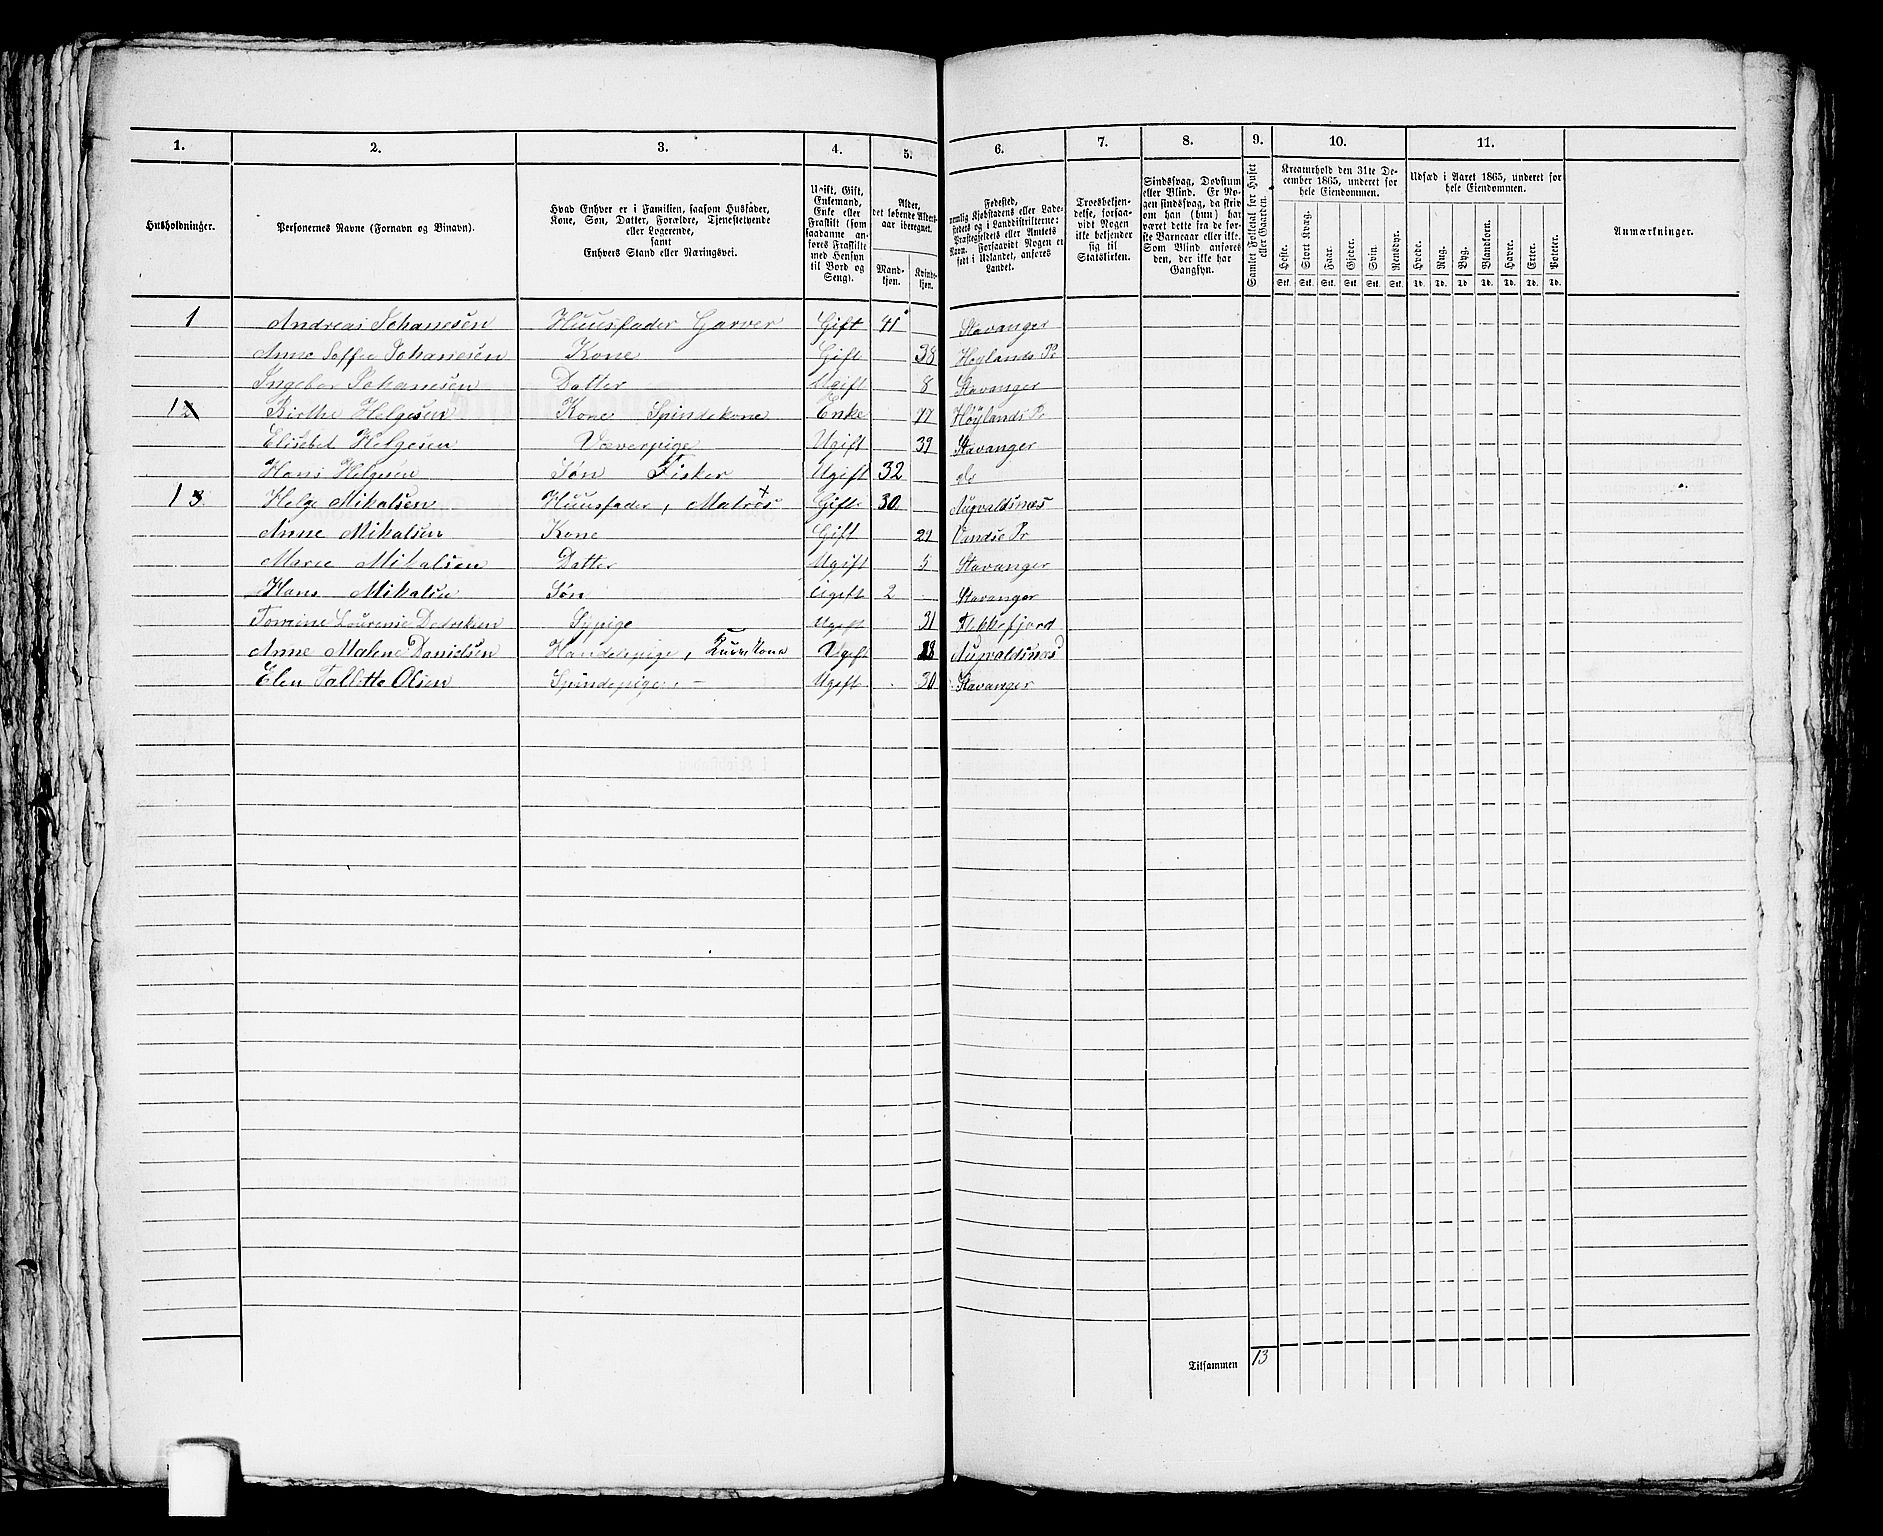 1. 2. 3. 4. 5. 6. 7. 8. 9. 10. 11.
Husholdninger.
Personernes Navne (Fornavn og Binavn).
Hvad Enhver er i Familien, saasom Husfader,
Kone, Søn, Datter, Forældre, Tjenestetyende
eller Logerende,
samt
Enhvers Stand eller Næringsvei.
Ugift, Gift,
Enkemand,
Enke eller
Fraskilt (som
saadanne an-
føres Fraskilte
med Hensyn
til Bord og
Seng).
Alder,
det løbende Alders-
aar iberegnet.
Mand-
kjøn.
Kvinde-
kjøn.
Fødested,
nemlig Kjøbstadens eller Lade-
stedets og i Landdistrikterne:
Præstegjeldets eller Amtets
Navn. Forsaavidt Nogen er
født i Udlandet, anføres
Landet.
Troesbekjen-
delse, forsaa-
vidt Nogen
ikke bekjender
sig til
Statskirken.
Sindssvag, Døvstum
eller Blind. Er No-
gen sindssvag, da skriv
om han (hun) har
været dette fra de før-
ste Barneaar eller ikke.
Som Blind anføres
den, der ikke har
Gangsyn.
Samlet Folketal for Huset
eller Gaarden.
Kreaturhold den 31te De-
cember 1865, underet for
hele Eiendommen.
Heste. Stort Kvæg. Faar. Gjeder. Svin. Rensdyr.
Stk. Stk. Stk. Stk. Stk. Stk.
Udsæd i Aaret 1865, underet for
hele Eiendommen.
Hvede. Rug. Byg. Blandkorn. Havre. Erter. Poteter.
Td. Td. Td. Td. Td. Td. Td.
Anmærkninger.
1 Andreas Johanesen Huusfader Garver Gift 41 Stavanger
Anne Soffie Johanesen Kone Gift 38 Høylands Pr
Ingebor Johanesen Datter Ugift 8 Stavanger
1 2 Birthe Helgesen Kone Spindekone Enke 77 Høylands Pr
Elisebet Helgesen Væverpige Ugift 39 Stavanger
Hans Helgesen Søn Fisker Ugift 32 do
1 3. Helge Mikalsen Huusfader, Matros Gift 30 Augvaldsnæs
Anne Mikalsen Kone Gift 29 Vandse Pr
Marie Mikalsen Datter Ugift 5 Stavanger
Hans Mikalsen Søn Ugift 2 Stavanger
Tomine Lourense Sypige Ugift 31 Flekkefjord
Anne Malene Danielsen Handelspige, Ugift 28 Augvaldsnæs
Elen Tallette Olsen Spindepige Ugift 30 Stavanger
Tilsammen 13